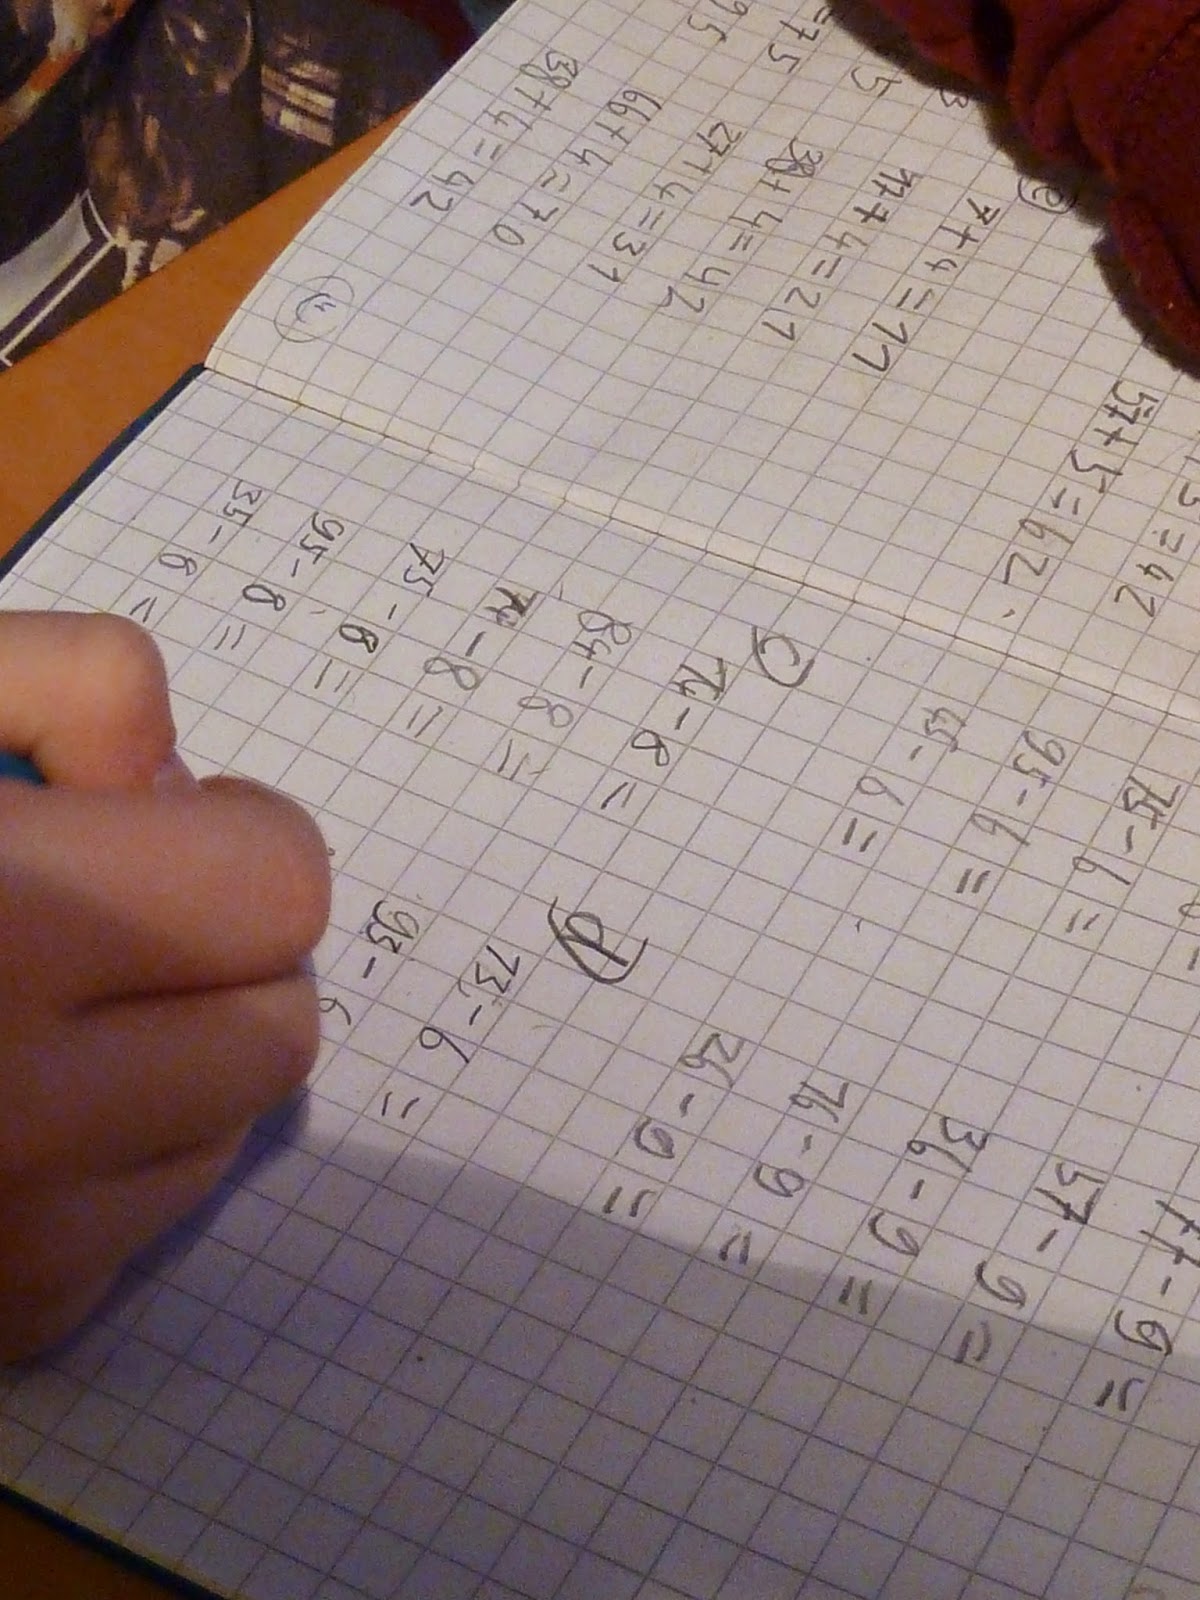 57+5=62
e)
7+4=11
17+4=21
38+4=42
27+4=31
66+4=70
38+4=42
75-6=
95-6=
45-6=
c)
74-8=
84-8=
74-8=
75-8=
95-8=
35-8=
77-9=
57-9=
36-9=
76-9=
26-9=
d)
73-6=
93-6